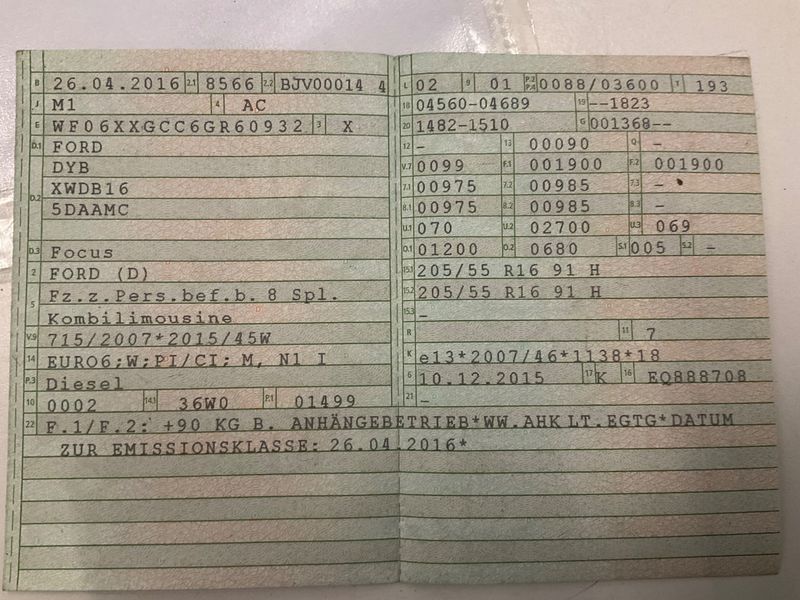 B 26.04.2016 2.1 8566 2.2 BJV00014 4
J M1 4 AC
E WF06XXGCC6GR60932 3 X
D.1 FORD
DYB
D.2 XWDB16
5DAAMC
D.3 Focus
2 FORD (D)
5 Fz.z.Pers.bef.b. 8 Spl.
Kombilimousine
V.9 715/2007*2015/45W
14 EURO6;W;PI/CI; M, N1 I
P.3 Diesel
10 0002 14.1 36W0 P.1 01499
L 02 9 01 P.2 P.4 0088/03600 T 193
18 04560-04689 19 --1823
20 1482-1510 G 001368--
12 - 13 00090 Q -
V.7 0099 F.1 001900 F.2 001900
7.1 00975 7.2 00985 7.3 -
8.1 00975 8.2 00985 8.3 -
U.1 070 U.2 02700 U.3 069
O.1 01200 O.2 0680 S.1 005 S.2 -
15.1 205/55 R16 91 H
15.2 205/55 R16 91 H
15.3 -
R 11 7
K e13*2007/46*1138*18
6 10.12.2015 17 K 16 EQ888708
21 -
22 F.1/F.2: +90 KG B. ANHÄNGEBETRIEB*WW.AHK LT.EGTG*DATUM
ZUR EMISSIONSKLASSE: 26.04.2016*